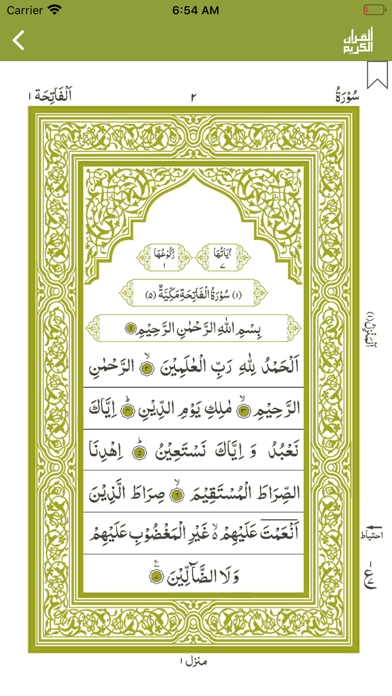 Carrier 6:54 AM
القرآن الكريم
سُوْرَةُ ٢ اَلْفَاتِحَة ١
اٰیَاتُهَا ٧ رُكُوْعُهَا ١
(١) سُوْرَةُ الْفَاتِحَةِ مَكِّيَّةٌ (٥)
بِسْمِ اللهِ الرَّحْمٰنِ الرَّحِيْمِ ١
اَلْحَمْدُ لِلّٰهِ رَبِّ الْعٰلَمِيْنَ ٢ الرَّحْمٰنِ
الرَّحِيْمِ ٣ مٰلِكِ يَوْمِ الدِّيْنِ ٤ اِيَّاكَ
نَعْبُدُ وَ اِيَّاكَ نَسْتَعِيْنُ ٥ اِهْدِنَا
الصِّرَاطَ الْمُسْتَقِيْمَ ٦ صِرَاطَ الَّذِيْنَ
اَنْعَمْتَ عَلَيْهِمْ ۵ غَيْرِ الْمَغْضُوْبِ عَلَيْهِمْ
وَلَا الضَّآلِّيْنَ ٧
اَلْمَنْزِلُ (١)
احتیاط
ع
منزل ١